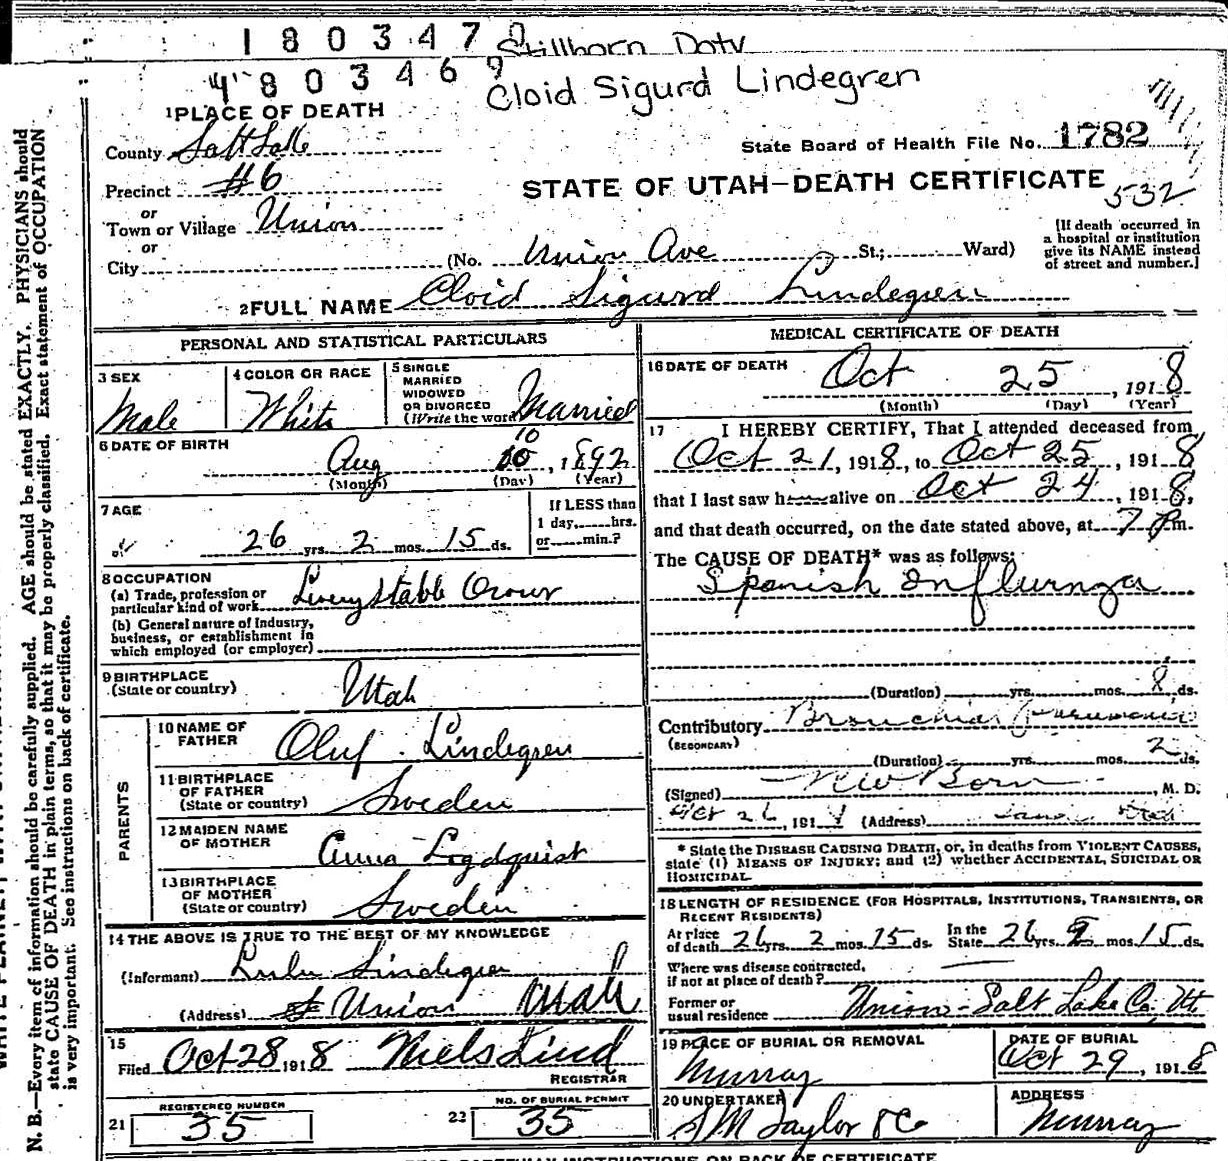 180347
Stillborn Doty
180346 9
Cloid Sigurd Lindegren
1 PLACE OF DEATH
County Salt Lake
State Board of Health File No. 1782
Precinct #6
STATE OF UTAH—DEATH CERTIFICATE
532
or
Town or Village Union
or
City (No. Union Ave St.; Ward)
[If death occurred in
a hospital or institution
give its NAME instead
of street and number.]
2 FULL NAME Cloid Sigurd Lindegren
PERSONAL AND STATISTICAL PARTICULARS
3 SEX
Male
4 COLOR OR RACE
White
5 SINGLE
MARRIED
WIDOWED
OR DIVORCED
(Write the word) Married
6 DATE OF BIRTH
10
Aug 10, 1892
(Month) (Day) (Year)
7 AGE
26 yrs. 2 mos. 15 ds.
If LESS than
1 day, hrs.
or min.?
8 OCCUPATION
(a) Trade, profession or
particular kind of work Livery Stable Owner
(b) General nature of Industry,
business, or establishment in
which employed (or employer)
9 BIRTHPLACE
(State or country) Utah
PARENTS
10 NAME OF
FATHER Oluf Lindegren
11 BIRTHPLACE
OF FATHER
(State or country) Sweden
12 MAIDEN NAME
OF MOTHER Anna Logdquist
13 BIRTHPLACE
OF MOTHER
(State or country) Sweden
14 THE ABOVE IS TRUE TO THE BEST OF MY KNOWLEDGE
(Informant) Lulu Lindegren
(Address) Union Utah
15
Filed Oct 28 1918 Niels Lind
REGISTRAR
21 REGISTERED NUMBER
35
22 NO. OF BURIAL PERMIT
35
MEDICAL CERTIFICATE OF DEATH
16 DATE OF DEATH
Oct 25, 1918
(Month) (Day) (Year)
17 I HEREBY CERTIFY, That I attended deceased from
Oct 21, 1918, to Oct 25, 1918
that I last saw h alive on Oct 24, 1918,
and that death occurred, on the date stated above, at 7 P.m.
The CAUSE OF DEATH* was as follows:
Spanish Influenza
(Duration) yrs. mos. 8 ds.
Contributory Bronchial Pneumonia
(SECONDARY)
(Duration) yrs. mos. 2 ds.
(Signed) Born, M. D.
Oct 26, 191 (Address)
* State the DISEASE CAUSING DEATH, or, in deaths from VIOLENT CAUSES,
state (1) MEANS OF INJURY; and (2) whether ACCIDENTAL, SUICIDAL OR
HOMICIDAL.
18 LENGTH OF RESIDENCE (FOR HOSPITALS, INSTITUTIONS, TRANSIENTS, OR
RECENT RESIDENTS)
At place
of death 26 yrs. 2 mos. 15 ds. In the
State 26 yrs. 2 mos. 15 ds.
Where was disease contracted,
if not at place of death?
Former or
usual residence Union - Salt Lake Co, Ut.
19 PLACE OF BURIAL OR REMOVAL
Murray
DATE OF BURIAL
Oct 29, 1918
20 UNDERTAKER
S M Taylor & Co
ADDRESS
Murray
N. B.—Every item of information should be carefully supplied. AGE should be stated EXACTLY. PHYSICIANS should
state CAUSE OF DEATH in plain terms, so that it may be properly classified. Exact statement of OCCUPATION
is very important. See instructions on back of certificate.
CAREFULLY INSTRUCTIONS ON BACK OF CERTIFICATE